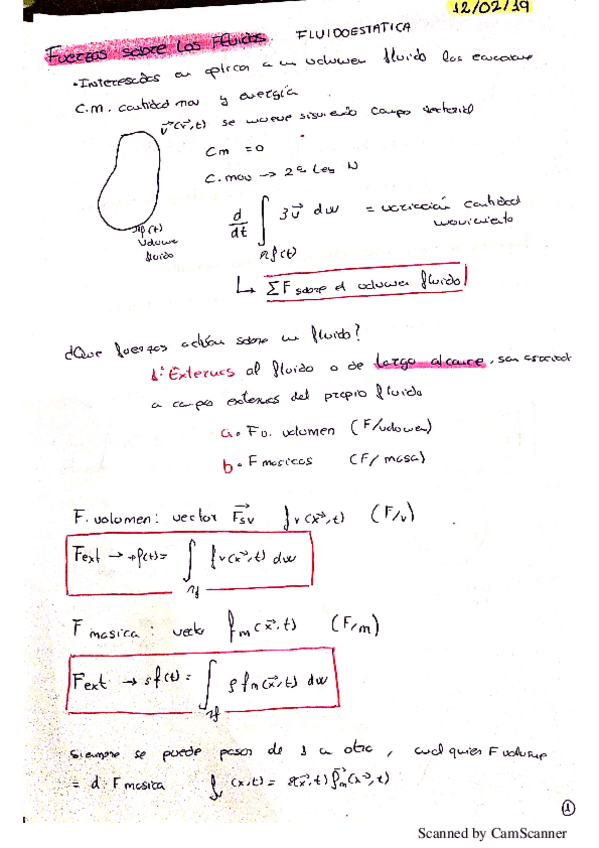 12/02/19
Fuerzas sobre los Fluidos. FLUIDOESTATICA
• Interesados en aplicar a un volumen fluido las
C.M. cantidad mov y energía
v⃗(x⃗,t) se mueve siguiendo campo vectorial
Cm = 0
C. mov → 2ª Ley N
d/dt ∫ ρv⃗ dw = variación cantidad
movimiento
Vf(t)
Volumen
fluido
↳ ΣF sobre el volumen fluido
¿Que fuerzas actúan sobre un fluido?
1: Externas al fluido o de largo alcance, son
a campos externos del propio fluido
a. FD. volumen (F/volumen)
b. F masicas (F/masa)
F. volumen: vector fv(x⃗,t) (F/v)
Fext → = ∫ fv(x⃗,t) dw
F masica: vector fm(x⃗,t) (F/m)
Fext → = ∫ ρ fm(x⃗,t) dw
Siempre se puede pasar de 1 a otra, cualquier F volumen
= d. F masica f (x,t) = ρ(x⃗,t) f⃗m(x⃗,t)
1
Scanned by CamScanner